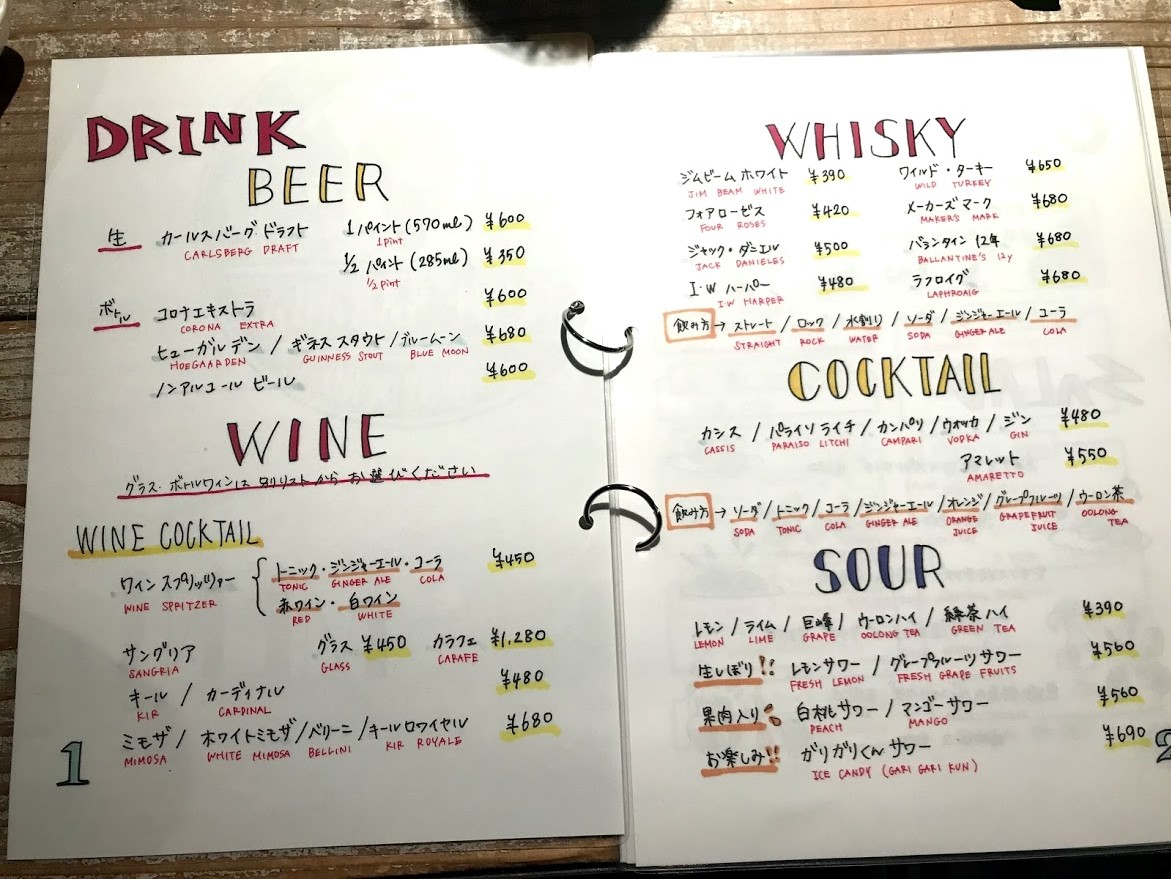 DRINK
BEER
生 カールスバーグ ドラフト 1パイント(570ml) ¥600
CARLSBERG DRAFT 1pint
1/2 パイント(285ml) ¥350
1/2 pint
ボトル コロナエキストラ ¥600
CORONA EXTRA
ヒューガルデン / ギネス スタウト / ブルームーン ¥680
HOEGAARDEN GUINNESS STOUT BLUE MOON
ノンアルコール ビール ¥600
WINE
グラス・ボトルワインは 別リストから お選びください
WINE COCKTAIL
ワインスプリッツァー トニック・ジンジャーエール・コーラ ¥450
WINE SPRITZER TONIC GINGER ALE COLA
赤ワイン・白ワイン
RED WHITE
サングリア グラス ¥450 カラフェ ¥1,280
SANGRIA GLASS CARAFE
キール / カーディナル ¥480
KIR CARDINAL
ミモザ / ホワイトミモザ / ベリーニ / キールロワイヤル ¥680
MIMOSA WHITE MIMOSA BELLINI KIR ROYALE
1
WHISKY
ジムビーム ホワイト ¥390 ワイルド・ターキー ¥650
JIM BEAM WHITE WILD TURKEY
フォアローゼス ¥420 メーカーズマーク ¥680
FOUR ROSES MAKER'S MARK
ジャック・ダニエル ¥500 バランタイン 12年 ¥680
JACK DANIELES BALLANTINE'S 12y
I・W ハーパー ¥480 ラフロイグ ¥680
I・W HARPER LAPHROAIG
飲み方 → ストレート / ロック / 水割り / ソーダ / ジンジャーエール / コーラ
STRAIGHT ROCK WATER SODA GINGER ALE COLA
COCKTAIL
カシス / パライソ ライチ / カンパリ / ウォッカ / ジン ¥480
CASSIS PARAISO LITCHI CAMPARI VODKA GIN
アマレット ¥550
AMARETTO
飲み方 → ソーダ / トニック / コーラ / ジンジャーエール / オレンジ / グレープフルーツ / ウーロン茶
SODA TONIC COLA GINGER ALE ORANGE JUICE GRAPEFRUIT JUICE OOLONG TEA
SOUR
レモン / ライム / 巨峰 / ウーロンハイ / 緑茶ハイ ¥390
LEMON LIME GRAPE OOLONG TEA GREEN TEA
生しぼり!! レモンサワー / グレープフルーツ サワー ¥560
FRESH LEMON FRESH GRAPE FRUITS
果肉入り 白桃サワー / マンゴーサワー ¥560
PEACH MANGO
お楽しみ!! ガリガリくん サワー ¥690
ICE CANDY (GARI GARI KUN)
2